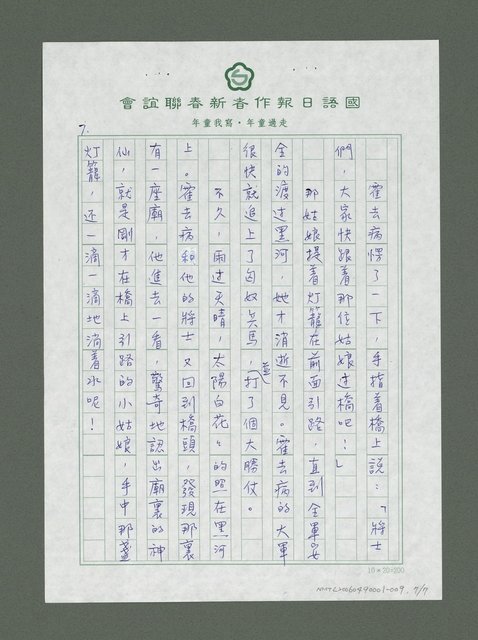 國語日報作者新春聯誼會
走過童年・寫我童年
7.
霍去病愣了一下，手指着橋上說：「將士
們，大家快跟着那位姑娘过橋吧！」
那姑娘提着灯籠在前面引路，直到全軍安
全的渡过黑河，她才消逝不見。霍去病的大軍
很快就追上了匈奴兵馬，並打了個大勝仗。
不久，雨过天晴，太陽白花々的照在黑河
上。霍去病和他的將士又回到橋頭，發現那裏
有一座廟，他進去一看，驚奇地認出廟裏的神
仙，就是剛才在橋上引路的小姑娘，手中那盞
灯籠，还一滴一滴地淌着水呢！
10×20=200
NMTL20060490001-009. 7/7